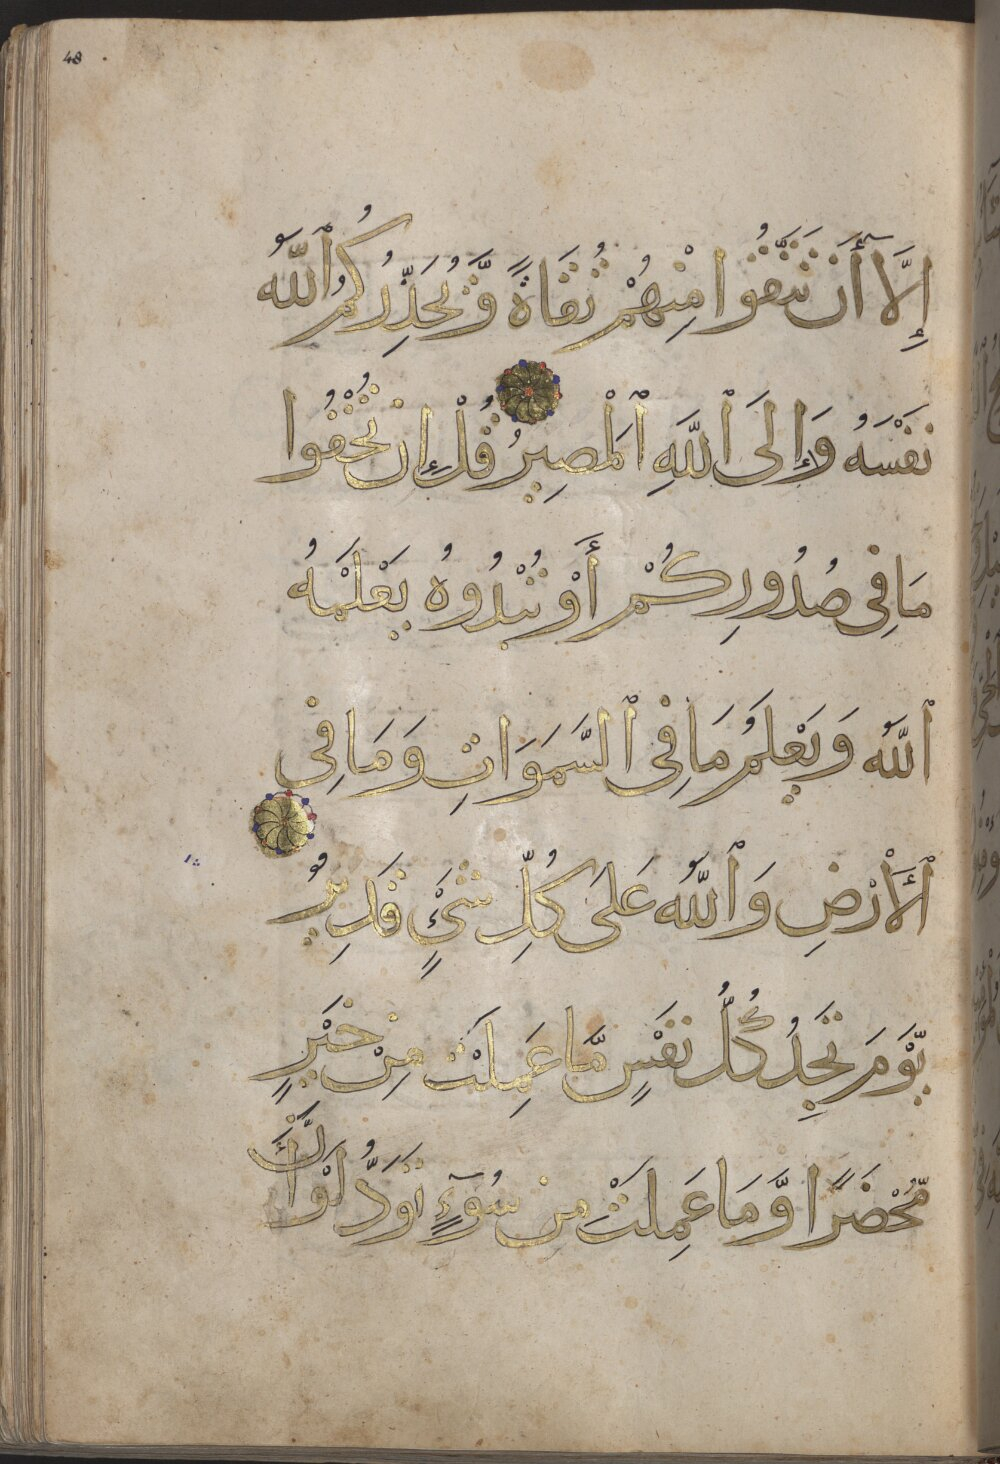 48
إِلَّآ أَن تَتَّقُوا مِنْهُمْ تُقَاةً وَّيُحَذِّرُكُمُ ٱللَّهُ
نَفْسَهُ وَإِلَى ٱللَّهِ ٱلْمَصِيرُ قُلْ إِن تُخْفُوا
مَا فِى صُدُورِكُمْ أَوْ تُبْدُوهُ يَعْلَمْهُ
ٱللَّهُ وَيَعْلَمُ مَا فِى ٱلسَّمَوَاتِ وَمَا فِى
ٱلْأَرْضِ وَٱللَّهُ عَلَى كُلِّ شَىْءٍ قَدِيرٌ
يَّوْمَ تَجِدُ كُلُّ نَفْسٍ مَّا عَمِلَتْ مِنْ خَيْرٍ
مُّحْضَرًا وَّمَا عَمِلَتْ مِن سُوٓءٍ تَوَدُّ لَوْ أَنَّ